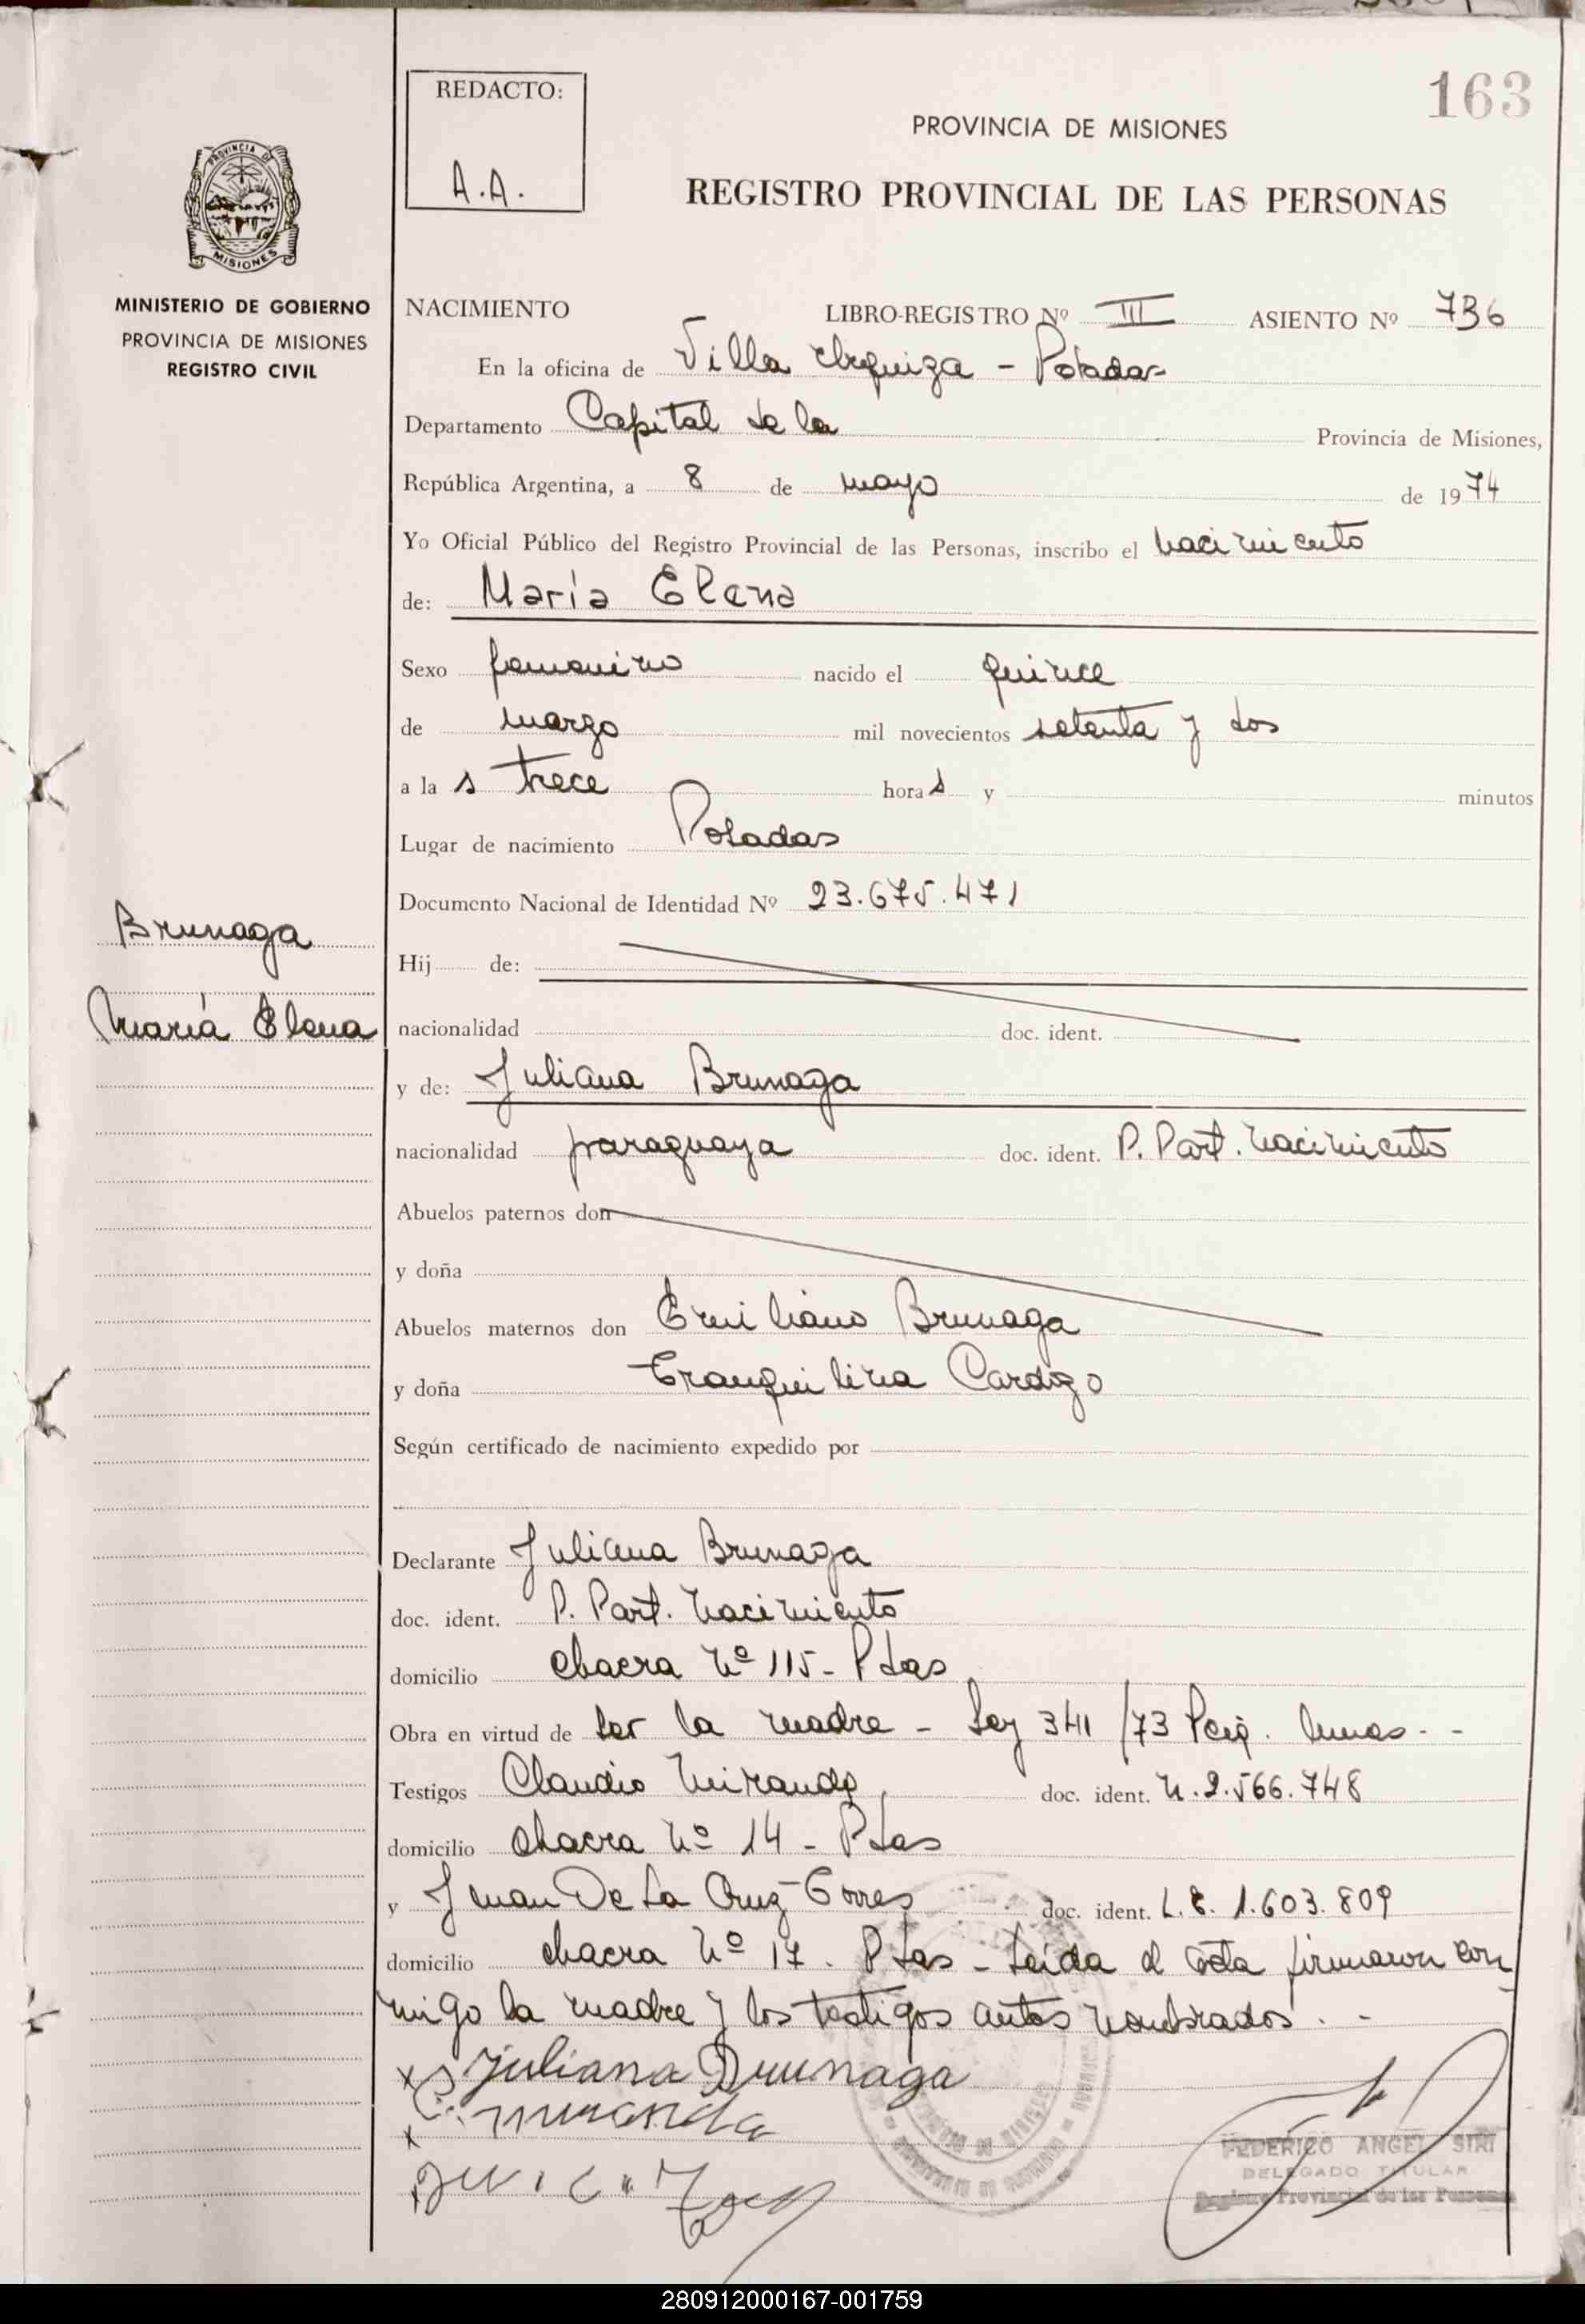 163
REDACTO:
A.A.
PROVINCIA DE MISIONES
REGISTRO PROVINCIAL DE LAS PERSONAS
PROVINCIA DE
MISIONES
MINISTERIO DE GOBIERNO
PROVINCIA DE MISIONES
REGISTRO CIVIL
NACIMIENTO LIBRO-REGISTRO Nº III ASIENTO Nº 736
En la oficina de Villa Urquiza - Posadas
Departamento Capital de la Provincia de Misiones,
República Argentina, a 8 de mayo de 1974
Yo Oficial Público del Registro Provincial de las Personas, inscribo el nacimiento
de: María Elena
Sexo femenino nacido el quince
de marzo mil novecientos setenta y dos
a la s trece hora s y minutos
Lugar de nacimiento Posadas
Documento Nacional de Identidad Nº 23.675.471
Brunaga
María Elena
Hij de:
nacionalidad doc. ident.
y de: Juliana Brunaga
nacionalidad paraguaya doc. ident. P. Part. nacimiento
Abuelos paternos don
y doña
Abuelos maternos don Emiliano Brunaga
y doña Tranquilina Cardozo
Según certificado de nacimiento expedido por
Declarante Juliana Brunaga
doc. ident. P. Part. nacimiento
domicilio chacra Nº 115 - Pdas
Obra en virtud de ser la madre - Ley 341/73
Testigos Claudio Miranda doc. ident. M.2.566.748
domicilio chacra Nº 14 - Pdas
y Juan De La Cruz Torres doc. ident. L.E. 1.603.809
domicilio chacra Nº 17. Pdas - Leída el acta firmaron con
migo la madre y los testigos antes nombrados. -
x Juliana Brunaga
C. miranda
x
FEDERICO ANGEL SIRI
DELEGADO TITULAR
Registro Provincial de las Personas
280912000167-001759